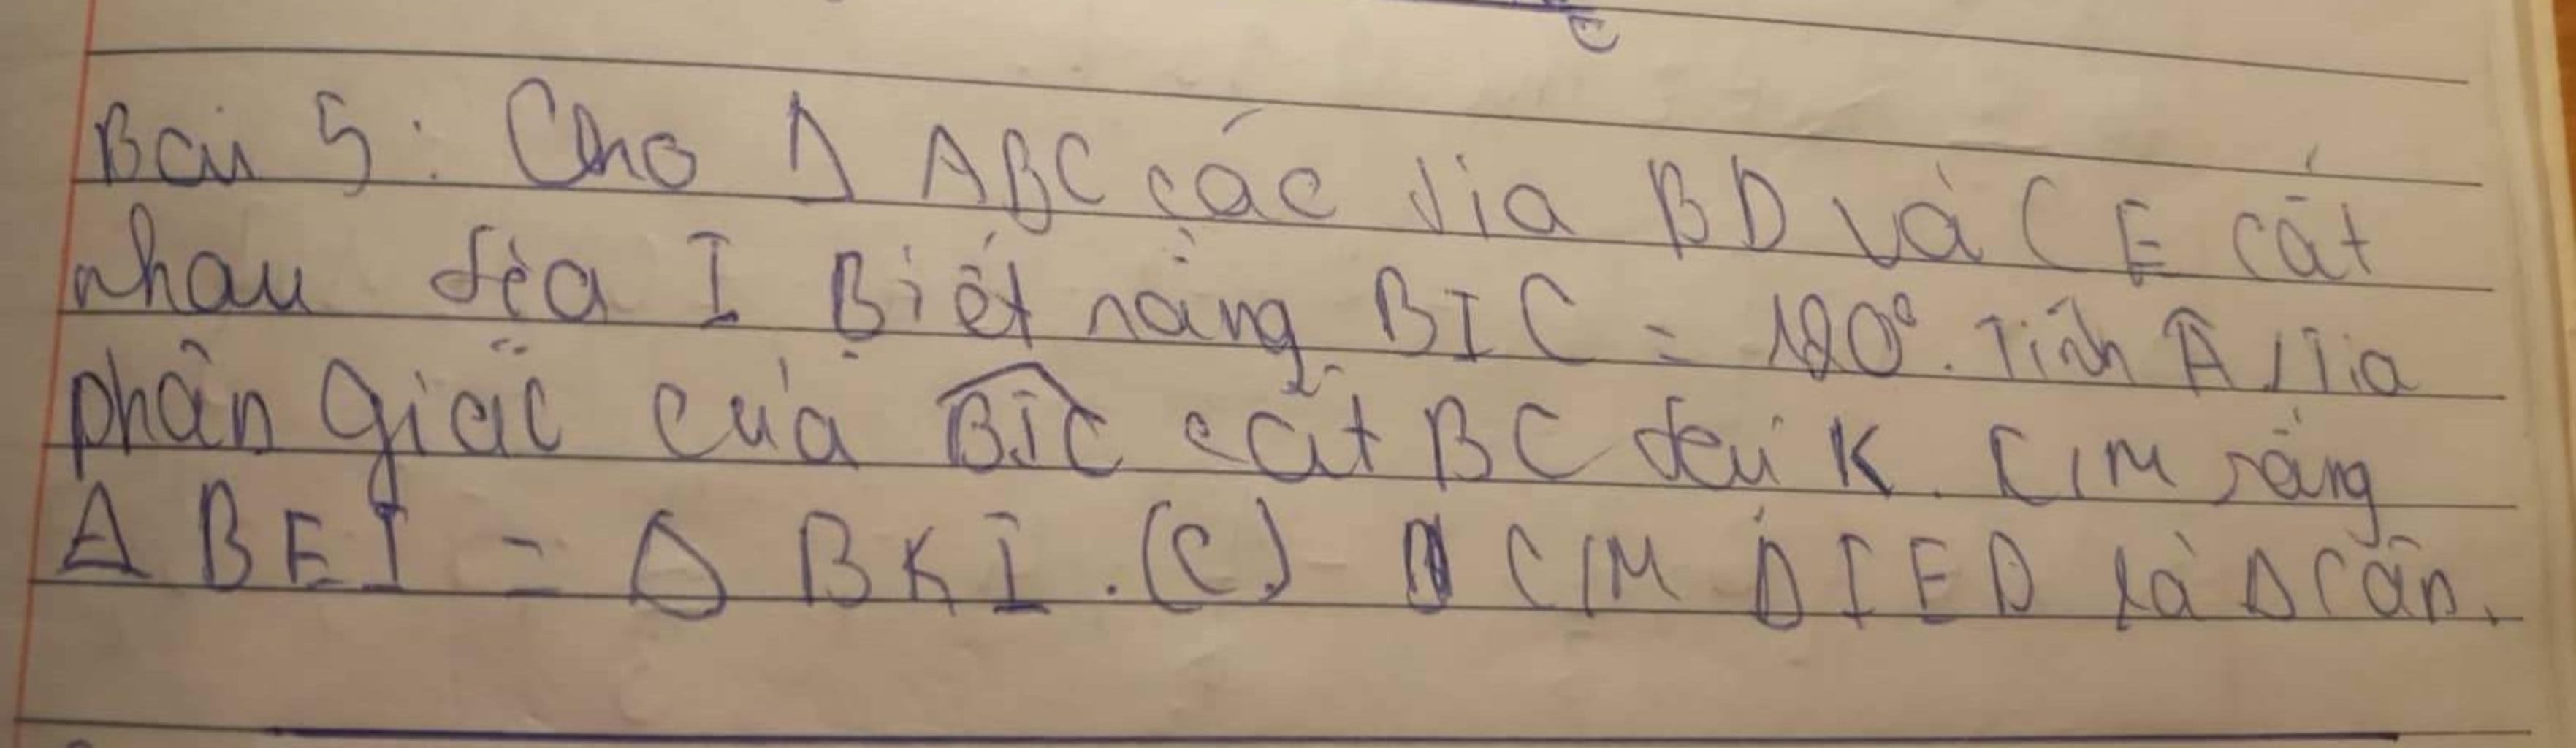 Bài 5: Cho Δ ABC các tia BD và CE cắt
nhau tại I Biết rằng BIC = 120°. Tính Â, Tia
phân giác của BIC cắt BC tại K. C/M rằng
Δ BEI = Δ BKI. (C) C/M Δ IED là Δ cân.